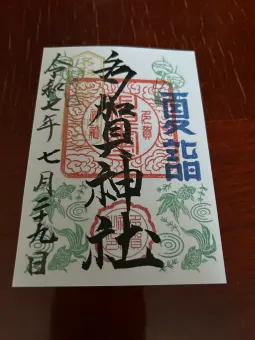 夏詣
多賀神社
令和七年 七月二十九日